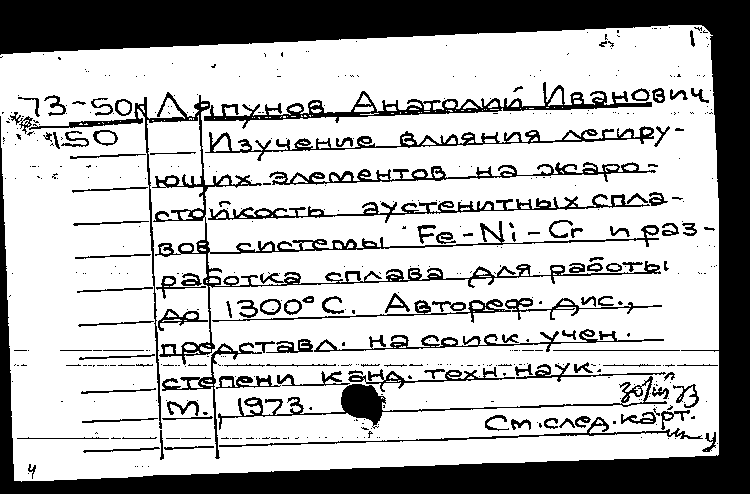 1
73-50к Ляпунов, Анатолий Иванович
150 Изучение влияния легиру-
ющих элементов на жаро-
стойкость аустенитных спла-
вов системы Fe-Ni-Cr и раз-
работка сплава для работы
до 1300°С. Автореф. дис.,
представл. на соиск. учен.
степени канд. техн. наук.
М., 1973.
30/III 73
См. след. карт.
ч